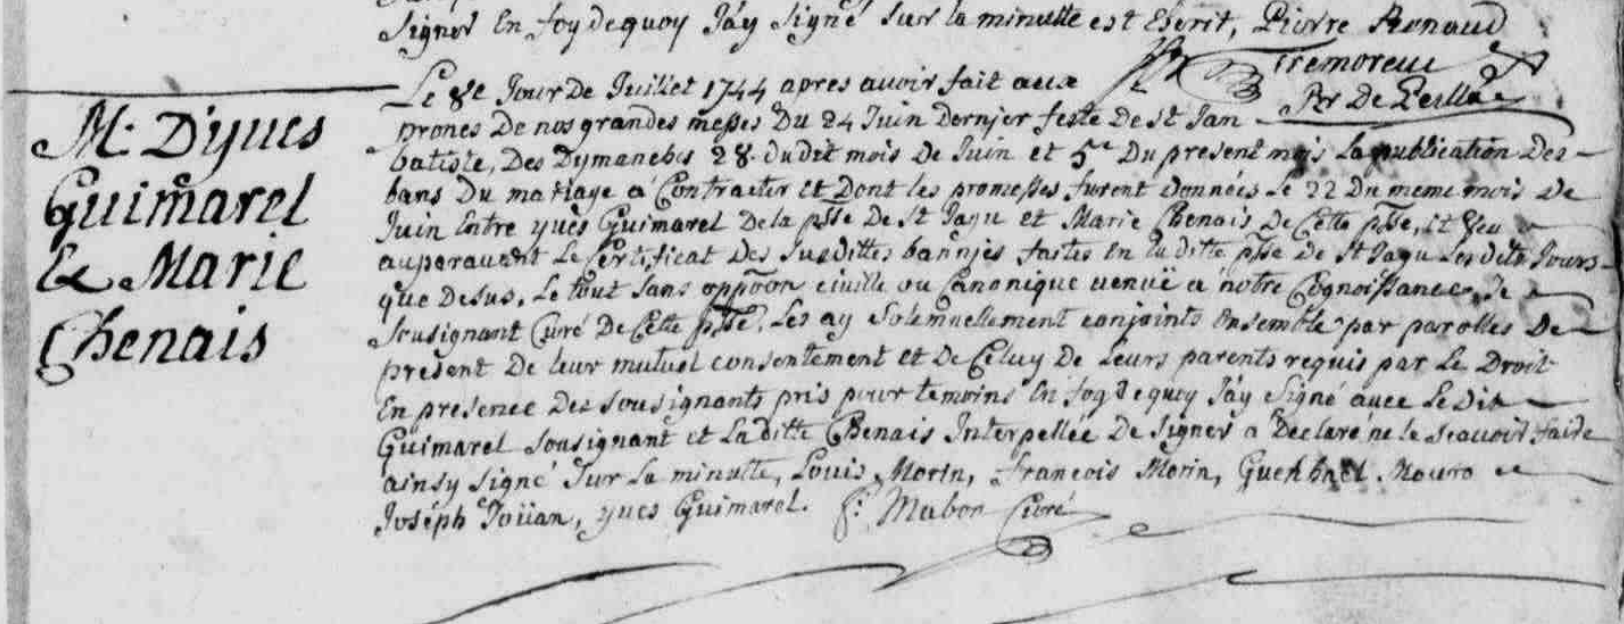 signer En foy de quoy J'ay signé sur la minutte est Escrit, Pierre Renaud
Tremoreuc
Rr De
M: D'yues
Guimarel
& Marie
Chenais
Le 8e Jour De Juillet 1744 apres avoir fait aux
prones De nos grandes messes Du 24 Juin Dernier feste De St Jan
batiste, Des Dymanches 28. dudit mois De Juin et 5e Du present mois La publication Des
bans Du mariage a Contracter et Dont les promesses furent Données Le 22 Du meme mois De
Juin Entre yues Guimarel De la psse De St Jagu et Marie Chenais De Cette psse, et Veu
auparauant Le Certificat Des Susdittes bannies faites En la ditte psse De St Jagu Lesdits Jours
que Desus. Le tout Sans oppoon ciuille ou Canonique venuë a notre Cognoissance, Je
Sousignant Curé De Cette psse, Les ay Solemnellement conjoints Ensemble par parolles De
present De leur mutuel consentement et De Celuy De Leurs parents requis par Le Droit
En presence Des sousignants pris pour temoins En foy De quoy J'ay Signé auec Le Dit
Guimarel sousignant et La ditte Chenais Interpellée De signer a Declaré ne le scauoir faire
ainsy signé Sur La minutte, Louis Morin, francois Morin, Guehenel Mouro
Joséph Joüan, yues Guimarel. f: Mabon Curé